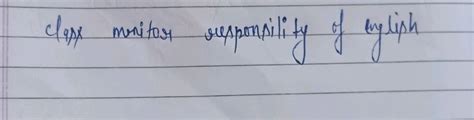 class monitor responsility of english